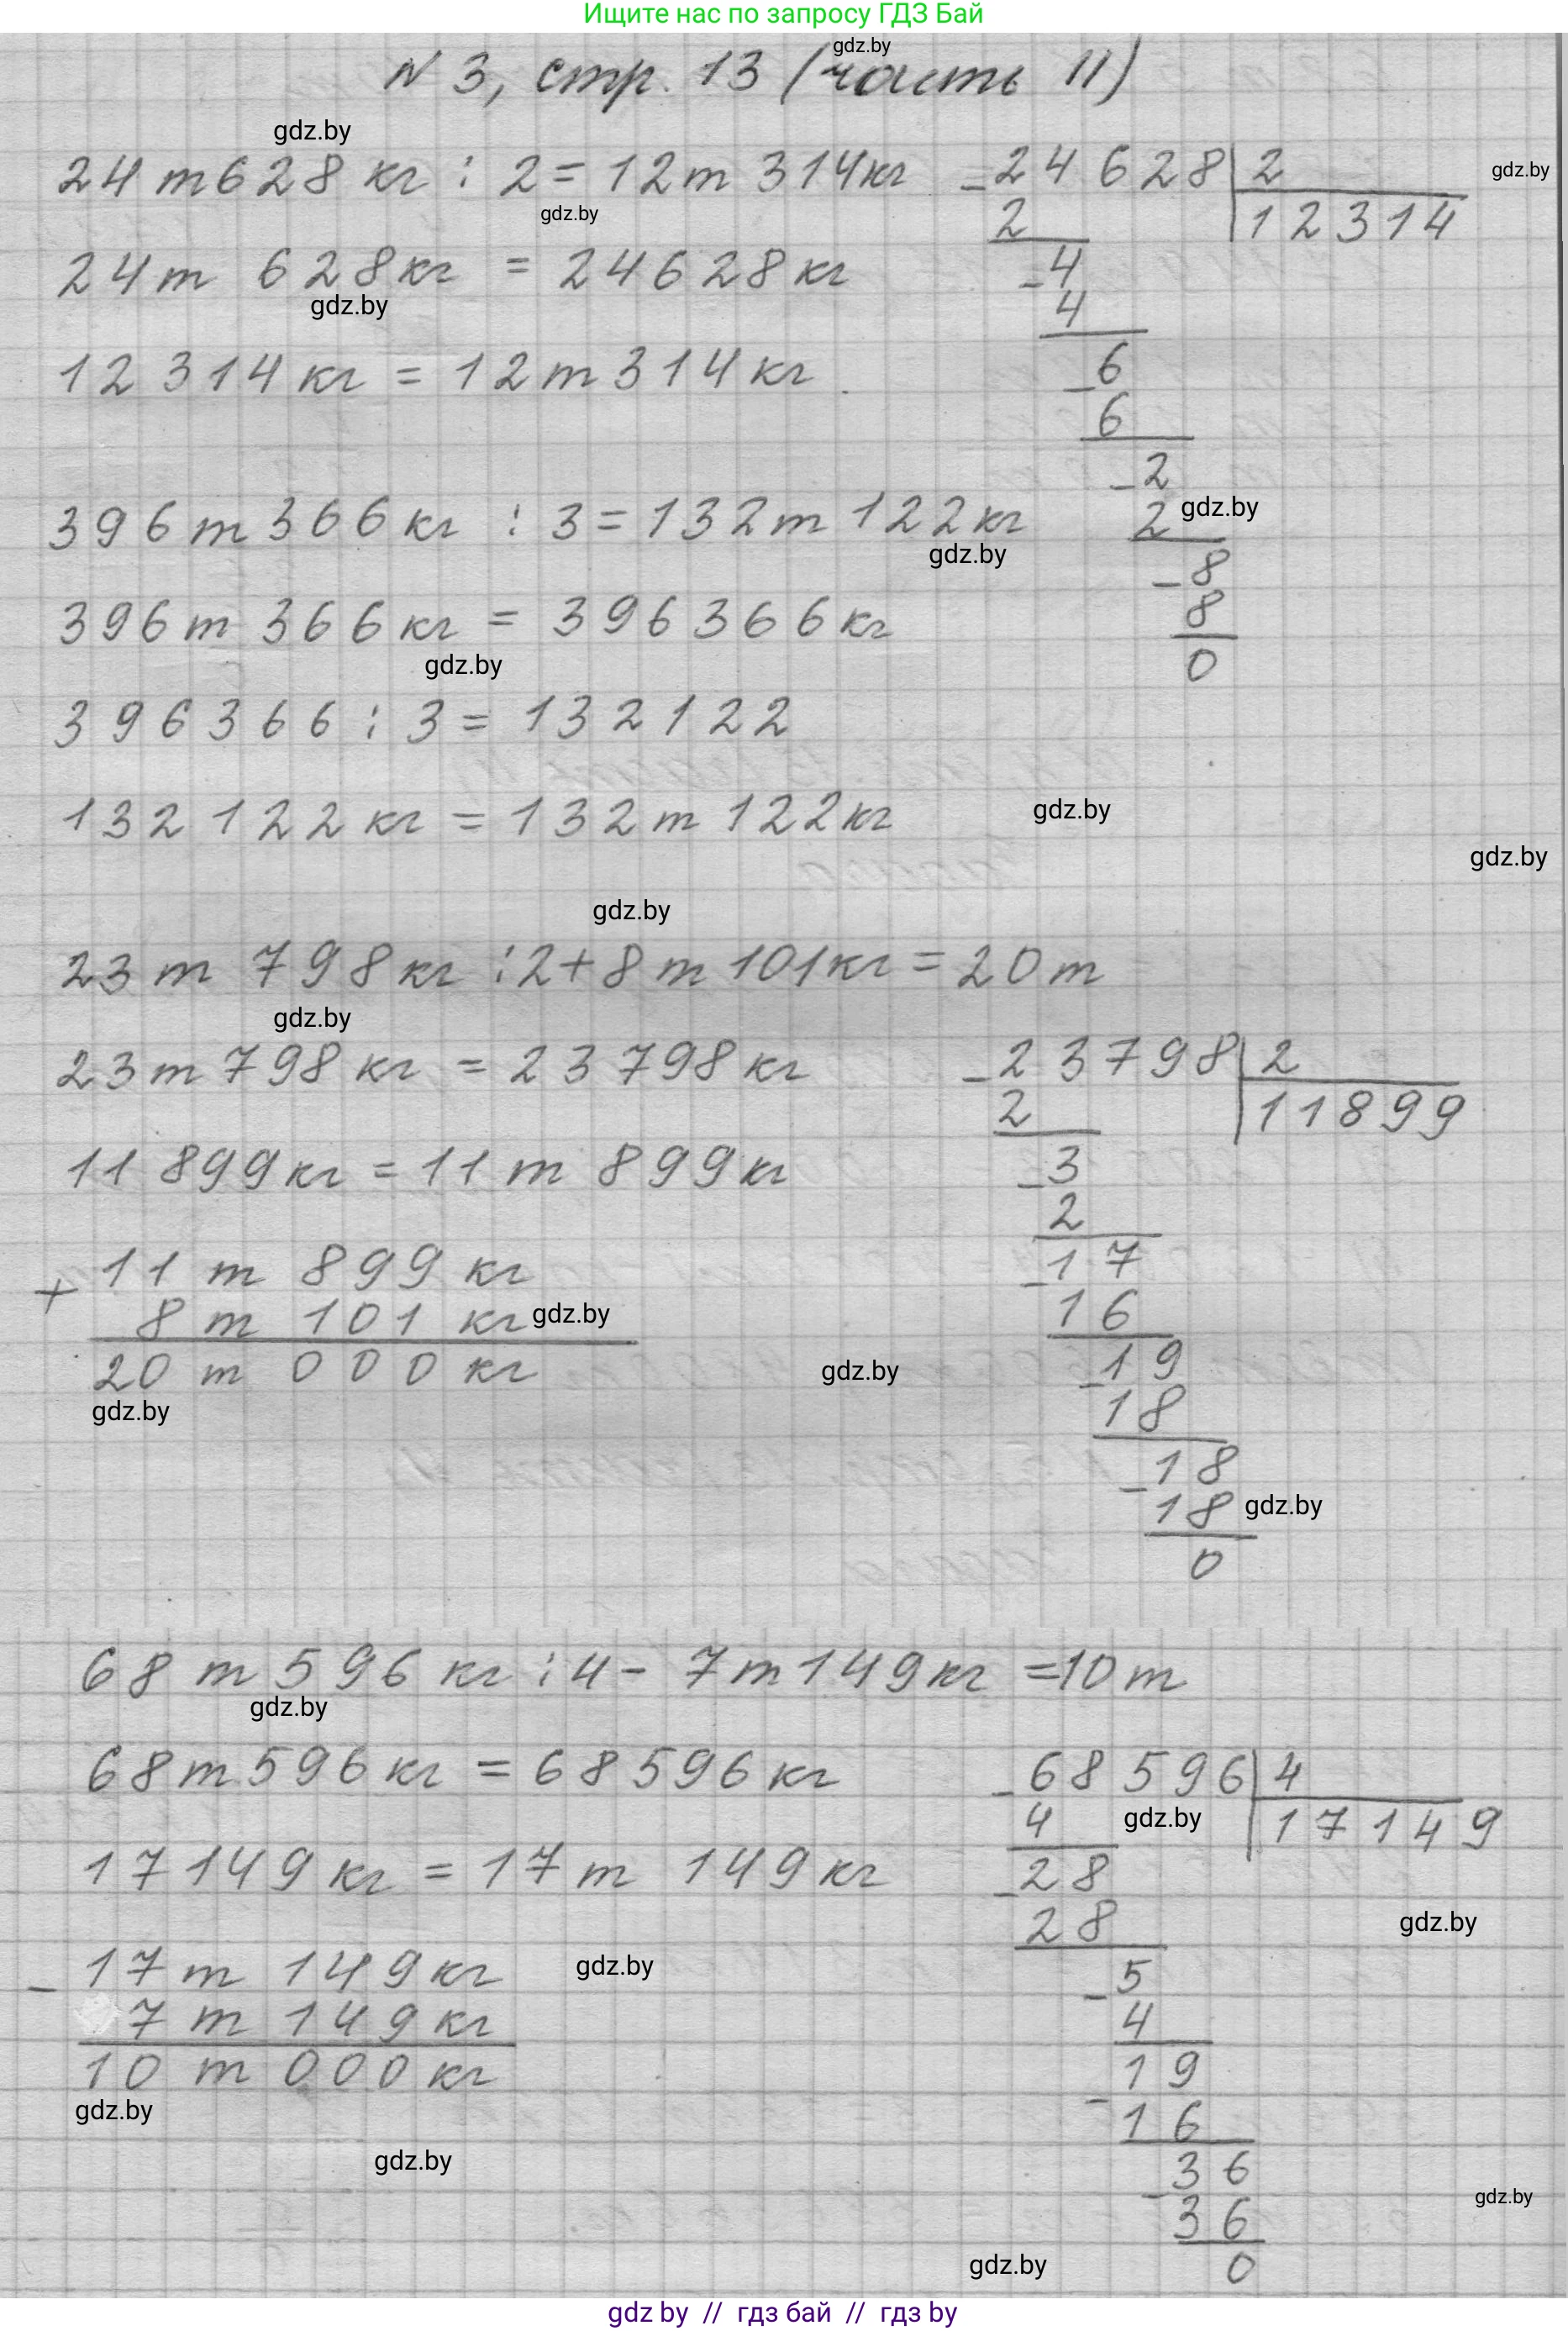 Ищите нас по запросу ГДЗ Бай
gdz.by
N 3, стр. 13 (часть II)
gdz.by
24 т 628 кг : 2 = 12 т 314 кг
gdz.by
gdz.by
24 т 628 кг = 24628 кг
gdz.by
12 314 кг = 12 т 314 кг
-24628 | 2
2 | 12314
-4
4
-6
6
-2
2 gdz.by
-8
8
0
396 т 366 кг : 3 = 132 т 122 кг
gdz.by
396 т 366 кг = 396366 кг
gdz.by
396366 : 3 = 132122
132 122 кг = 132 т 122 кг
gdz.by
gdz.by
gdz.by
23 т 798 кг : 2 + 8 т 101 кг = 20 т
gdz.by
23 т 798 кг = 23798 кг
11 899 кг = 11 т 899 кг
+ 11 т 899 кг
8 т 101 кг gdz.by
20 т 000 кг
gdz.by
gdz.by
-23798 | 2
2 | 11899
-3
2
-17
16
-19
18
-18
18 gdz.by
0
68 т 596 кг : 4 - 7 т 149 кг = 10 т
gdz.by
68 т 596 кг = 68596 кг
17149 кг = 17 т 149 кг
- 17 т 149 кг
gdz.by
7 т 149 кг
10 т 000 кг
gdz.by
gdz.by
-68596 | 4
4 gdz.by | 17149
-28
28
gdz.by
-5
4
-19
16
-36
gdz.by
36
gdz.by
0
gdz by // гдз бай // гдз by